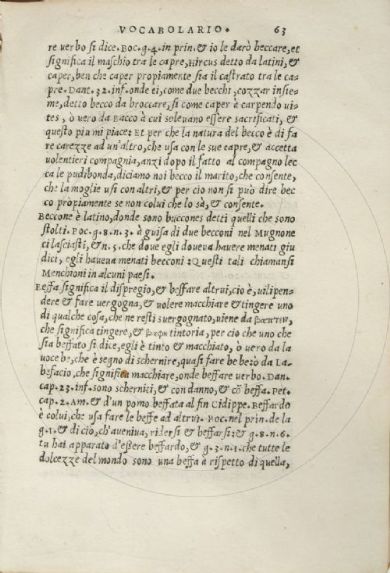 VOCABOLARIO. 63
re verbo si dice. Boc. g. 4. in prin. & io le darò beccare, et
significa il maschio tra le capre, Hircus detto da latini, et
caper, ben che caper propiamente, sia il castrato tra le ca-
pre. Dant. 32. inf. onde ei, come due becchi, cozzar insie-
me, detto becco da broccare, si come caper è carpendo vi-
tes, ò vero da Bacco à cui solevano essere sacrificati, &
questo piu mi piace: Et per che la natura del becco è di fa
re carezze ad un'altro, che usa con le sue capre, & accetta
volentieri compagnia, anzi dopo il fatto al compagno lec
ca le pudibonda, diciamo noi becco il marito, che consente,
che la moglie usi con altri, & per ciò non si può dire bec
co propiamente se non colui che lo sà, & consente.
Beccone è latino, donde sono buccones detti quelli che sono
stolti. Boc. g. 8. n. 3. à guisa di due becconi nel Mugnone
ci lasciasti, & n. 5. che dove egli doveva havere menati giu
dici, egli haveva menati becconi Questi tali chiamansi
Menchioni in alcuni paesi.
Beffa significa il dispregio, & beffare altrui, cio è, vilipen-
dere & fare vergogna, & volere macchiare & tingere uno
di qualche cosa, che ne resti svergognato, viene da βαπτειν,
che significa tingere, & tintoria, per cio che uno che
sia beffato si dice, egli è tinto & macchiato, ò vero da la
voce che è segno di schernire, quasi fare be bezo da La-
befacio, che significa macchiare, onde beffare verbo. Dan.
cap. 23. inf. sono scherniti, & con danno, & cō beffa. Pet.
cap. 2. Am. & d'un pomo beffata al fin Cidippe. Beffardo
è colui, che usa fare le beffe ad altrui. Boc. nel prin. de la
g. 1. & di ciò, ch'aveniva, ridersi & beffarsi: & g. 8. n. 6.
tu hai apparato d'eßere beffardo, & g. 3. n. 1. che tutte le
dolcezze del mondo sono una beffa à rispetto di quella,